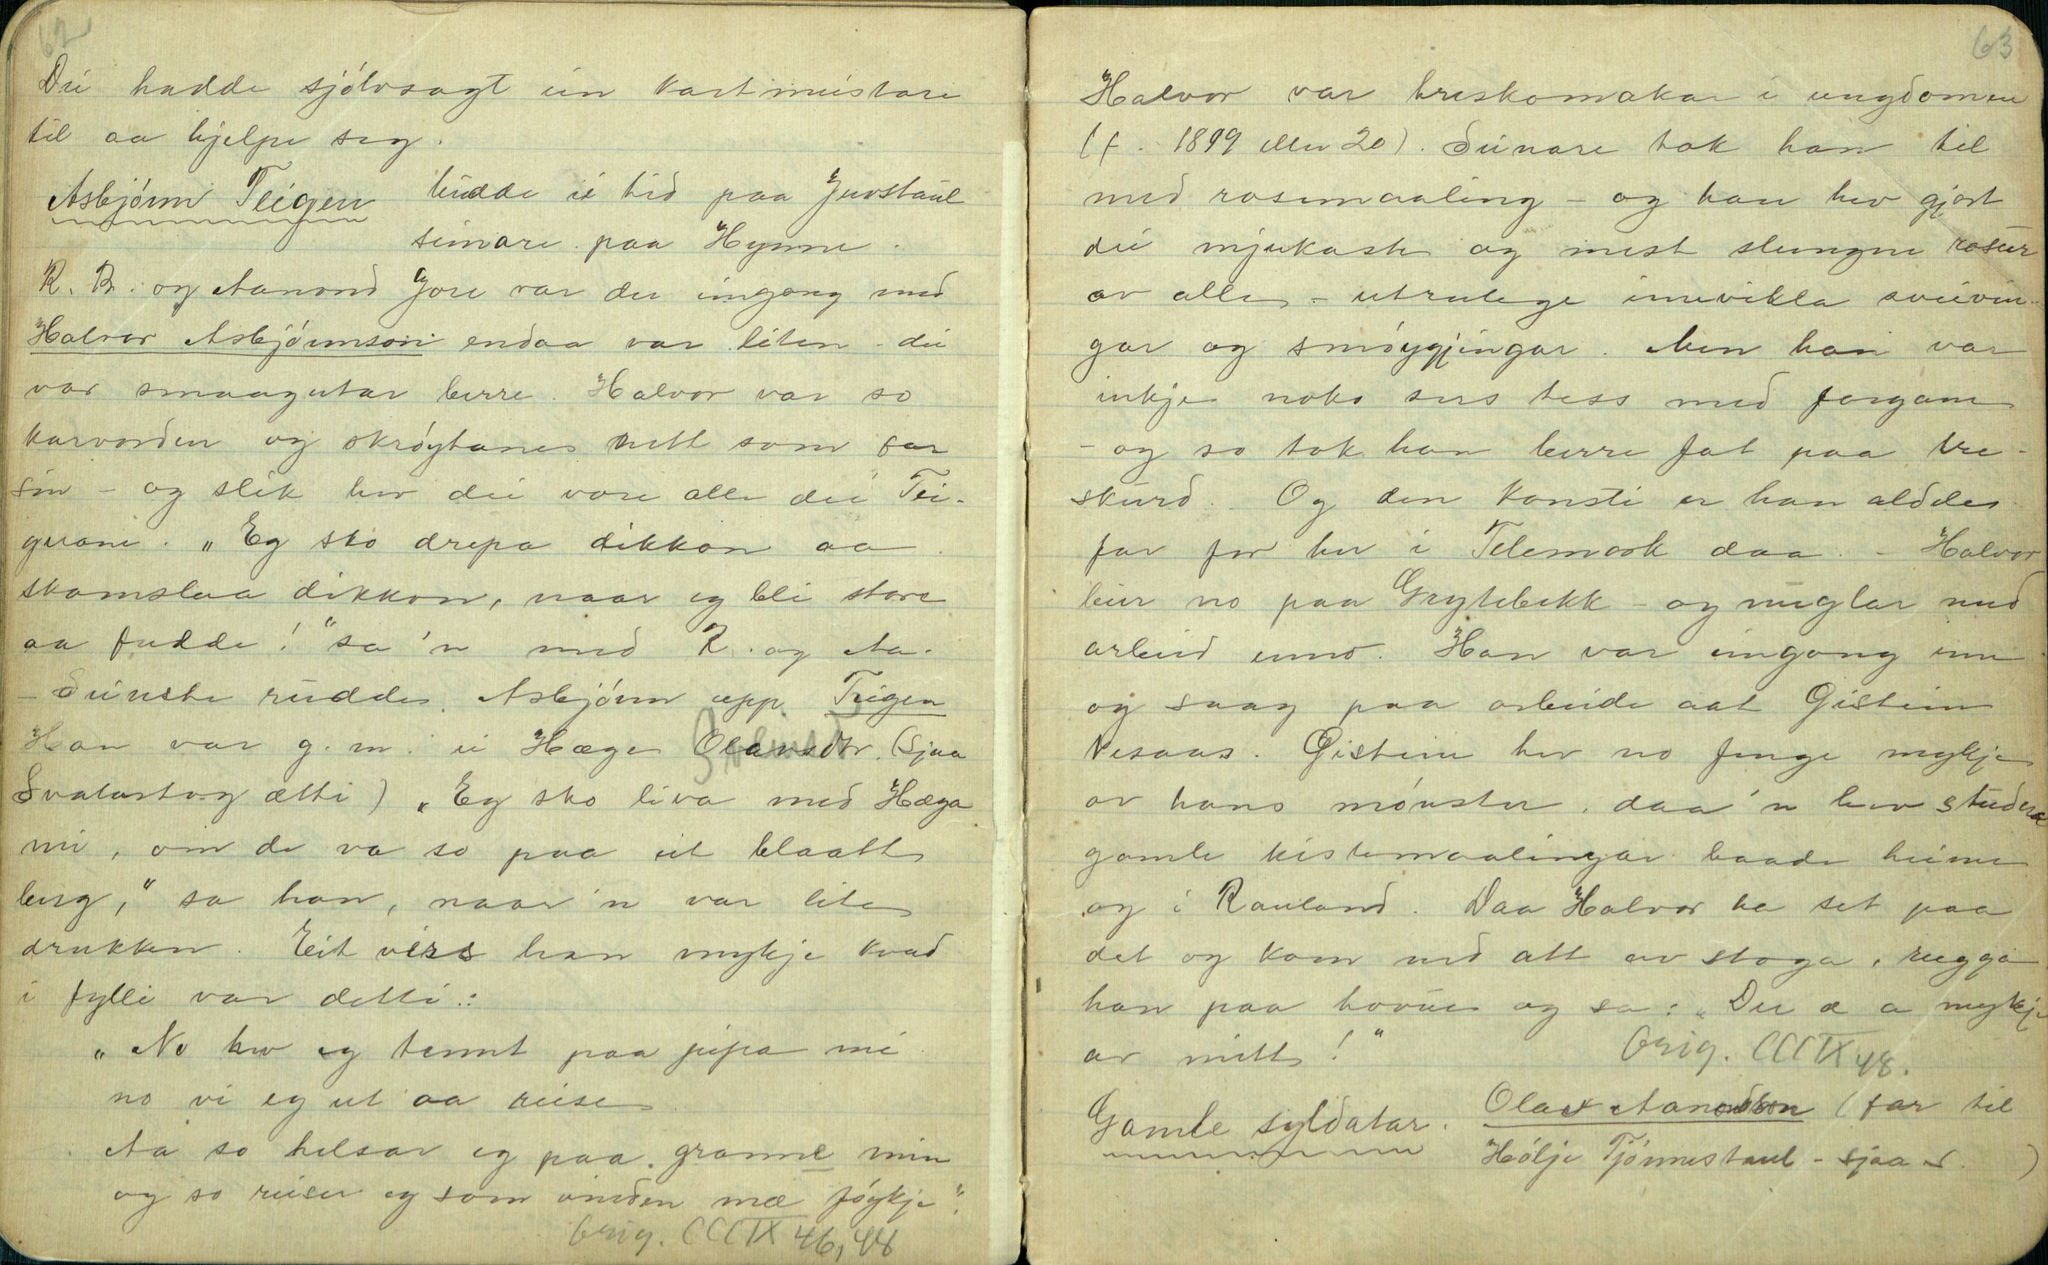 62
Dei hadde sjólvsagt ein kartmeistare
til aa hjelpe seg.
Asbjórnn Teigen budde ei tid paa Juvstaul
seinare paa Hynne.
R. R. og Aanond Jore var der eingong med
Halvor Asbjórnnson endaa var liten - dei
var smaagutar berre. Halvor var so
karvoren og skróytane nett som far
sin - og slik hev dei vore alle dei Tei-
garane. "Eg sko drepa dikkon aa
skamslaa dikkon, naar eg bli store
aa fudde!" sa 'n med R. og Aa.
- Seinste rudde Asbjórnn upp Teigen
Han var g. m. ei Hæge Olavsdtr. (Sjaa
Svalastog ætti) "Eg sko liva med Hæga
mi, om de va so paa eit blaatt
berg," sa han, naar 'n var lite
drukken. Eit vers han mykje kvad
i fylli var detti:
"No hev eg tennt paa pipa mi
no vi eg ut aa reise
Aa so helsar eg paa granne min
og so reiser eg som vinden mæ fóykje".
Orig. CCCIX 46, 48
63
Halvor var treskomakar i ungdomen
(f. 1819 eller 20). Seinare tok han til
med rosemaaling - og han hev gjort
dei mjukaste og mest slungne rosur
av alle - utrulege innvikla sveivin-
gar og smóygjingar. Men han var
inkje noko sers tess med fargane
- og so tok han berre fat paa tre-
skurd. Og den konsti er han alddes
far for her i Telemark daa. - Halvor
beur no paa Grytebekk - og meglar med
arbeid enno. Han var eingong inne
og saag paa arbeide aat Gistein
Vesaas. Gistein hev no fenge mykje
av hans mónster, daa 'n hev studera
gamle kistemaalingar baade heime
og i Rauland. Daa Halvor ha set paa
det og kom ned att av stoga, rugga
han paa hovue og sa: "Der æ a mykje
av mitt!"
Orig. CCCIX 48.
Gamle syldatar. Olav Aanondson (far til
Hólje Tjónnustaul - sjaa d. )